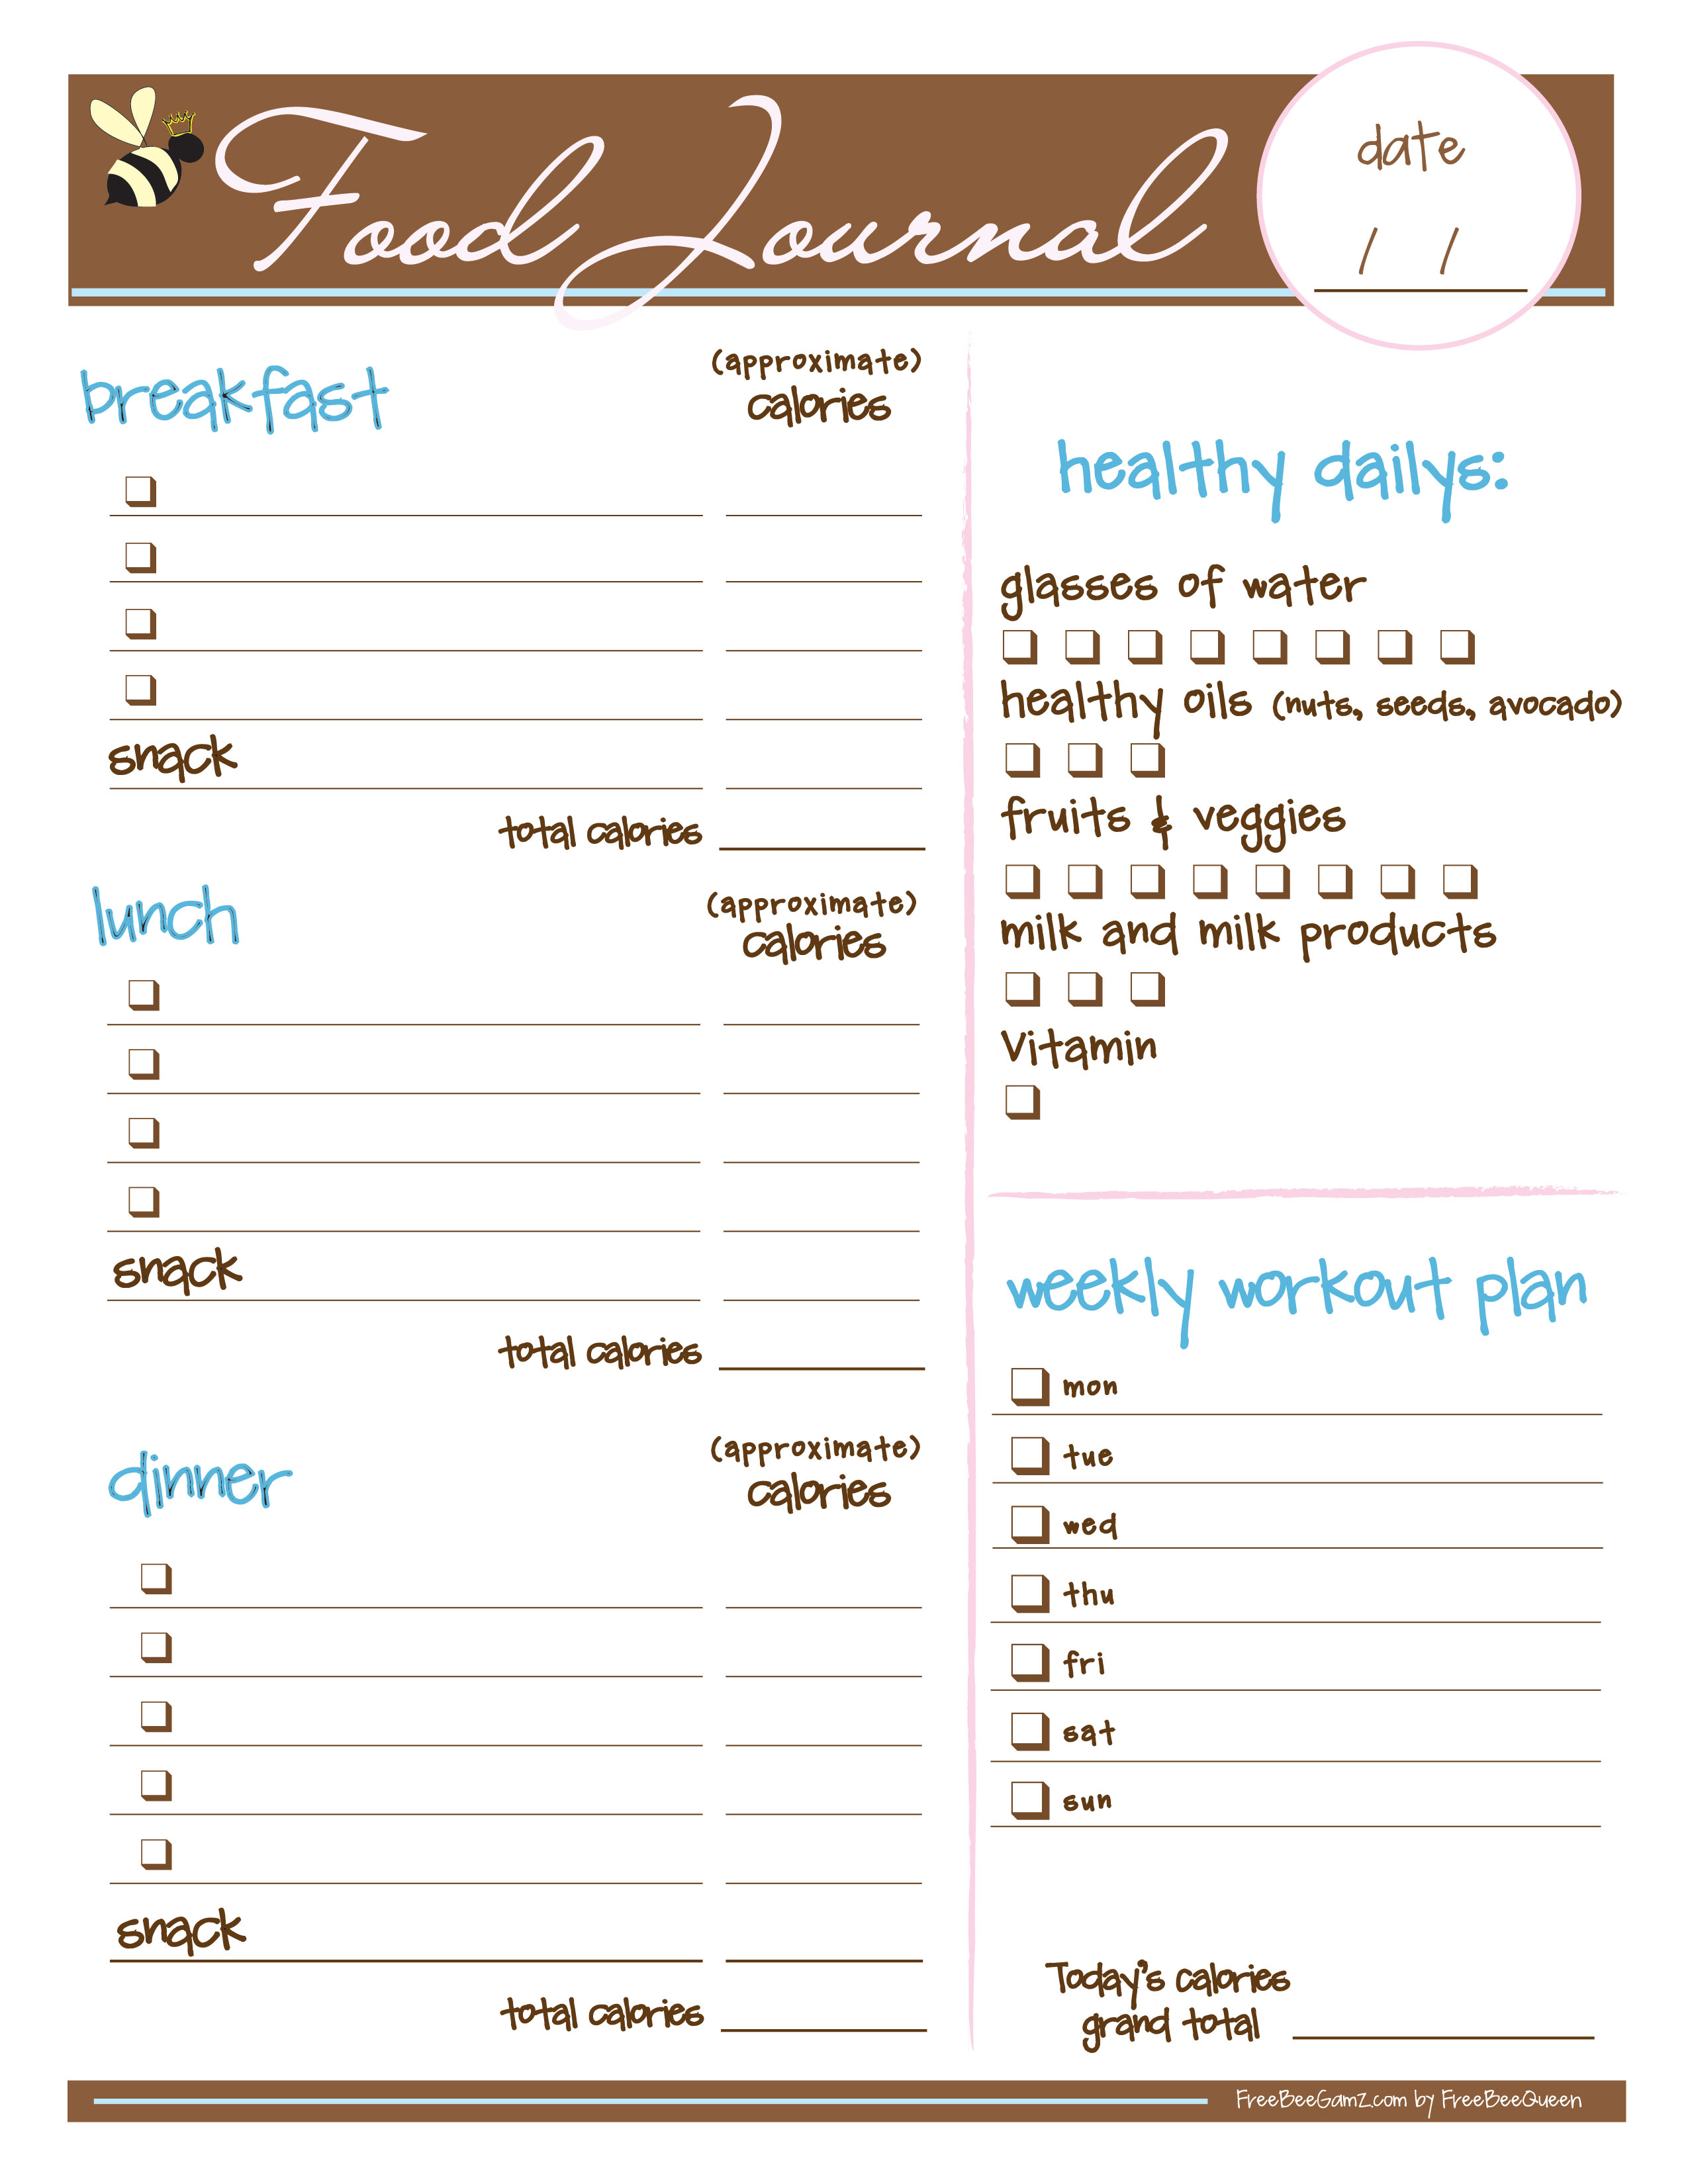 Food Journal
date
/ /
breakfast
(approximate)
calories
snack
total calories
lunch
(approximate)
calories
snack
total calories
dinner
(approximate)
calories
snack
total calories
healthy dailys:
glasses of water
healthy oils (nuts, seeds, avocado)
fruits & veggies
milk and milk products
Vitamin
weekly workout plan
mon
tue
wed
thu
fri
sat
sun
Today's calories
grand total
FreeBeeGamZ.com by FreeBeeQueen